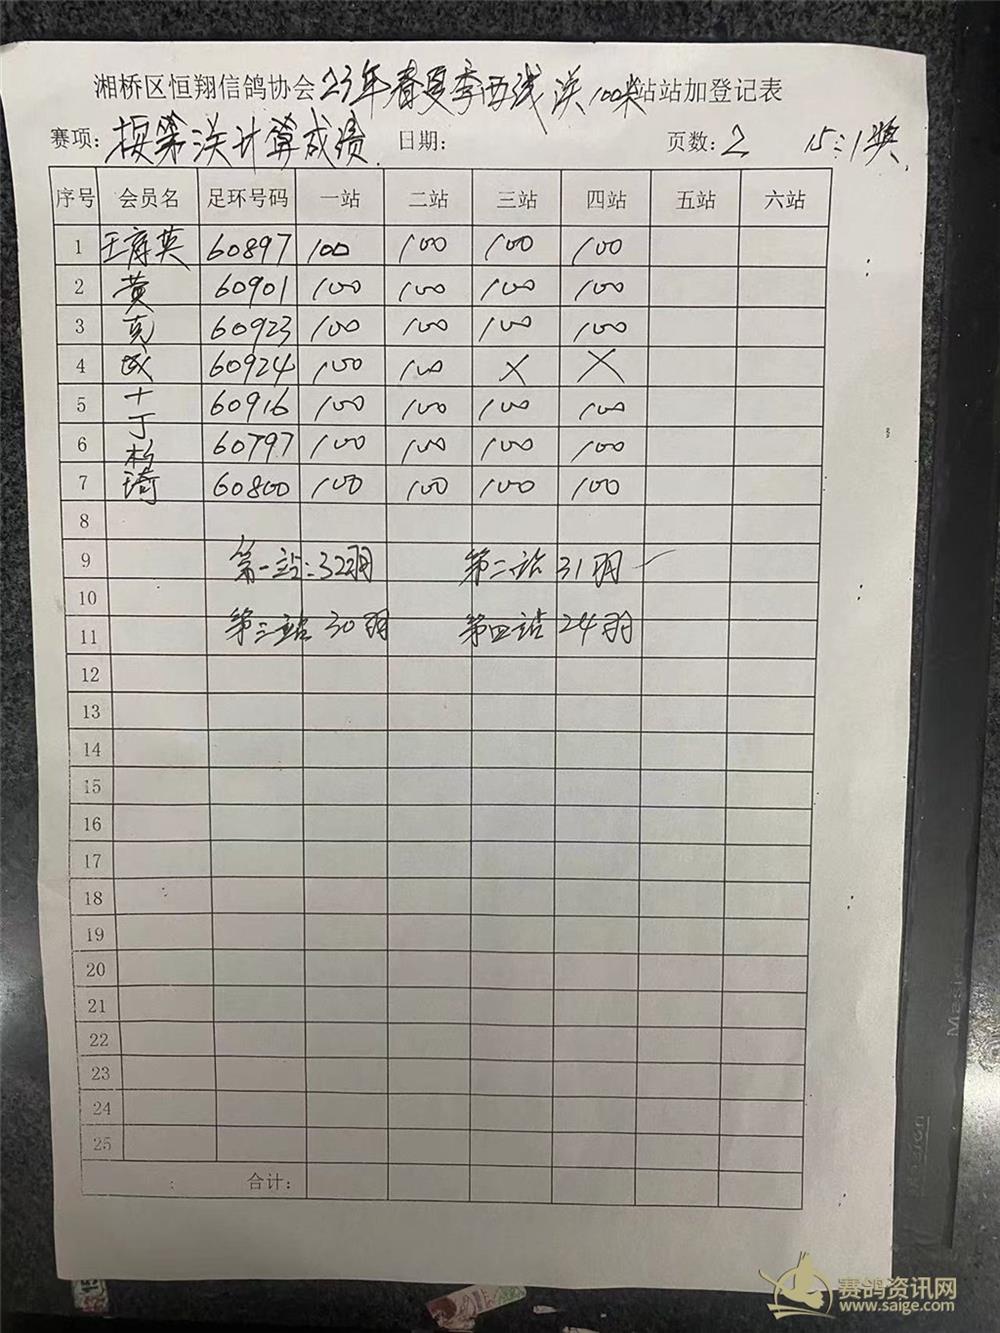 湘桥区恒翔信鸽协会23年春夏季西线 100 站站加登记表
赛项: 按第 计算成绩 日期: 页数: 2 15:1奖
序号 会员名 足环号码 一站 二站 三站 四站 五站 六站
1 王 英 60897 100 100 100 100
2 黄 60901 100 100 100 100
3 克 60923 100 100 100 100
4 成 60924 100 100 × ×
5 十 60916 100 100 100 100
丁
6 松 60797 100 100 100 100
7 琦 60800 100 100 100 100
8
9 第一站:32羽 第二站 31羽
10
11 第三站 30羽 第四站 24羽
12
13
14
15
16
17
18
19
20
21
22
23
24
25
合计:
赛鸽资讯网
www.saige.com